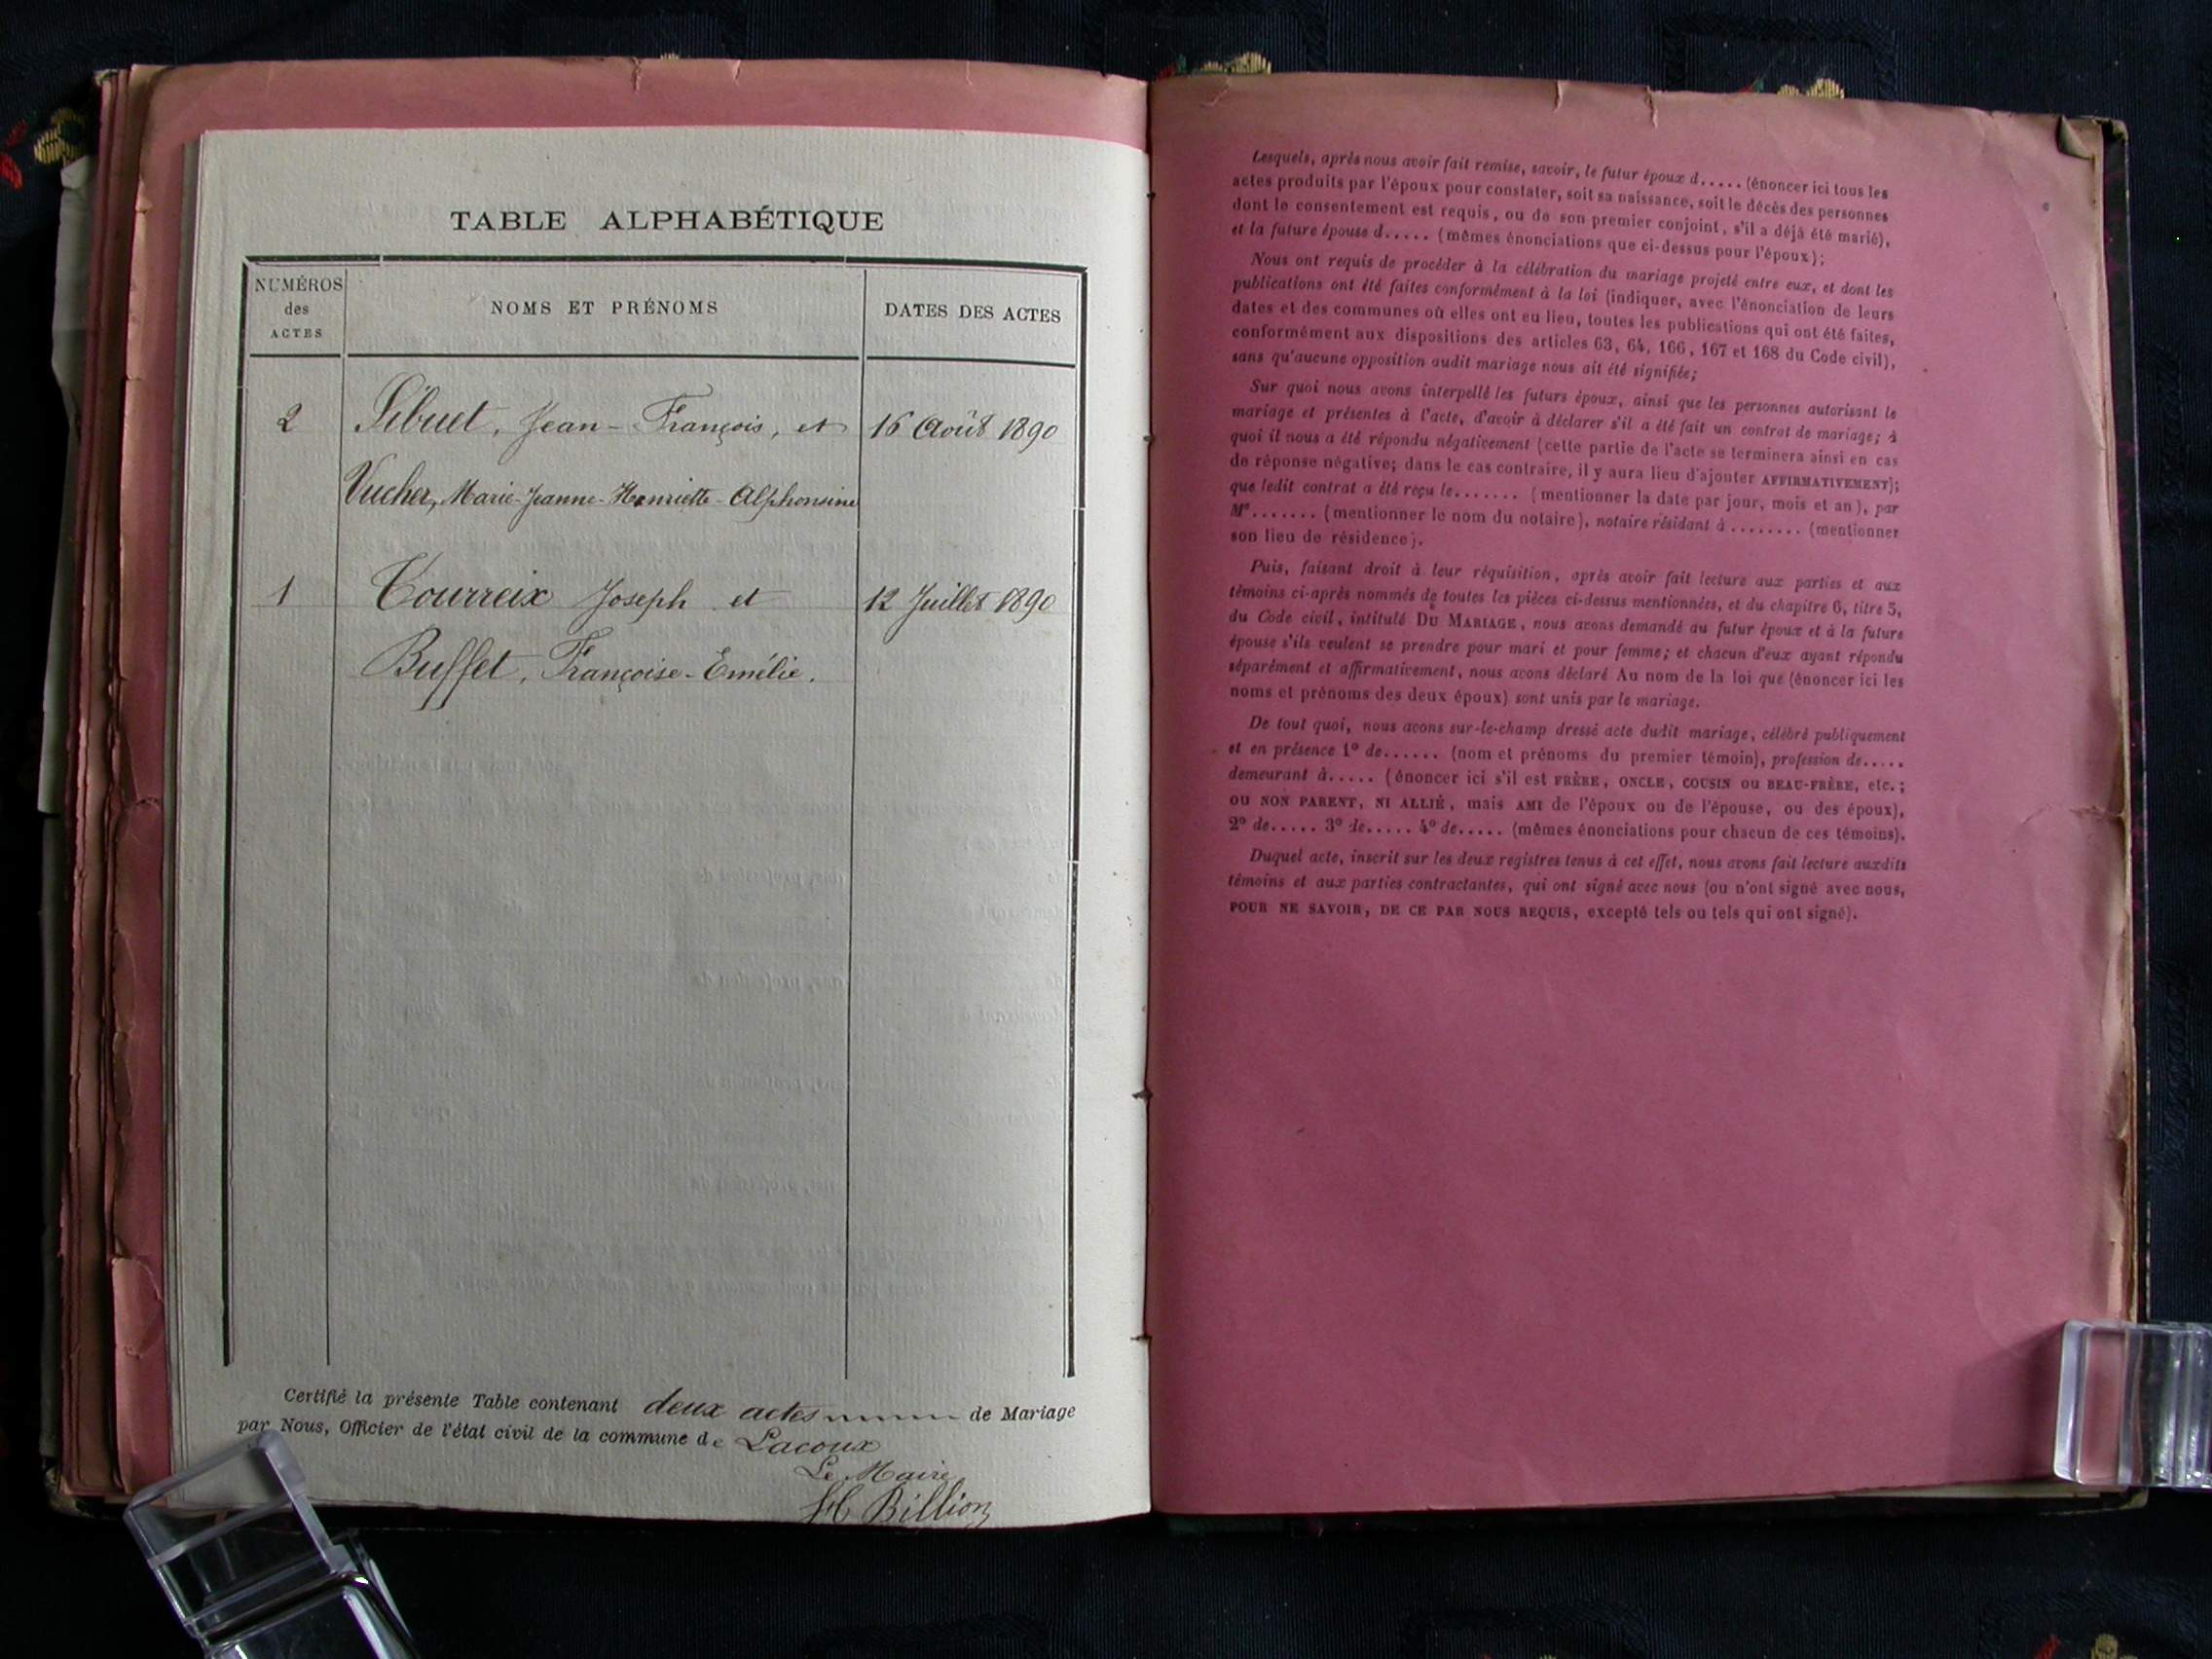 TABLE ALPHABÉTIQUE
NUMÉROS
des
ACTES
NOMS ET PRÉNOMS
DATES DES ACTES
2 Sibuet, Jean-François, et 16 Août 1890
Vucher, Marie-Jeanne-Henriette-Alphonsine
1 Tourreix Joseph et 12 Juillet 1890
Buffet, Françoise-Emélie.
Certifié la présente Table contenant deux actes de Mariage
par Nous, Officier de l'état civil de la commune de Lacoux
Le Maire
Billion
Lesquels, après nous avoir fait remise, savoir, le futur époux d..... (énoncer ici tous les
actes produits par l'époux pour constater, soit sa naissance, soit le décès des personnes
dont le consentement est requis, ou de son premier conjoint, s'il a déjà été marié),
et la future épouse d..... (mêmes énonciations que ci-dessus pour l'époux);
Nous ont requis de procéder à la célébration du mariage projeté entre eux, et dont les
publications ont été faites conformément à la loi (indiquer, avec l'énonciation de leurs
dates et des communes où elles ont eu lieu, toutes les publications qui ont été faites,
conformément aux dispositions des articles 63, 64, 166, 167 et 168 du Code civil),
sans qu'aucune opposition audit mariage nous ait été signifiée;
Sur quoi nous avons interpellé les futurs époux, ainsi que les personnes autorisant le
mariage et présentes à l'acte, d'avoir à déclarer s'il a été fait un contrat de mariage; à
quoi il nous a été répondu négativement (cette partie de l'acte se terminera ainsi en cas
de réponse négative; dans le cas contraire, il y aura lieu d'ajouter AFFIRMATIVEMENT);
que ledit contrat a été reçu le....... (mentionner la date par jour, mois et an), par
Me....... (mentionner le nom du notaire), notaire résidant à ........ (mentionner
son lieu de résidence).
Puis, faisant droit à leur réquisition, après avoir fait lecture aux parties et aux
témoins ci-après nommés de toutes les pièces ci-dessus mentionnées, et du chapitre 6, titre 5,
du Code civil, intitulé DU MARIAGE, nous avons demandé au futur époux et à la future
épouse s'ils veulent se prendre pour mari et pour femme; et chacun d'eux ayant répondu
séparément et affirmativement, nous avons déclaré Au nom de la loi que (énoncer ici les
noms et prénoms des deux époux) sont unis par le mariage.
De tout quoi, nous avons sur-le-champ dressé acte dudit mariage, célébré publiquement
et en présence 1° de...... (nom et prénoms du premier témoin), profession de.....
demeurant à..... (énoncer ici s'il est FRÈRE, ONCLE, COUSIN OU BEAU-FRÈRE, etc.;
OU NON PARENT, NI ALLIÉ, mais AMI de l'époux ou de l'épouse, ou des époux),
2° de..... 3° de..... 4° de..... (mêmes énonciations pour chacun de ces témoins).
Duquel acte, inscrit sur les deux registres tenus à cet effet, nous avons fait lecture auxdits
témoins et aux parties contractantes, qui ont signé avec nous (ou n'ont signé avec nous,
POUR NE SAVOIR, DE CE PAR NOUS REQUIS, excepté tels ou tels qui ont signé).